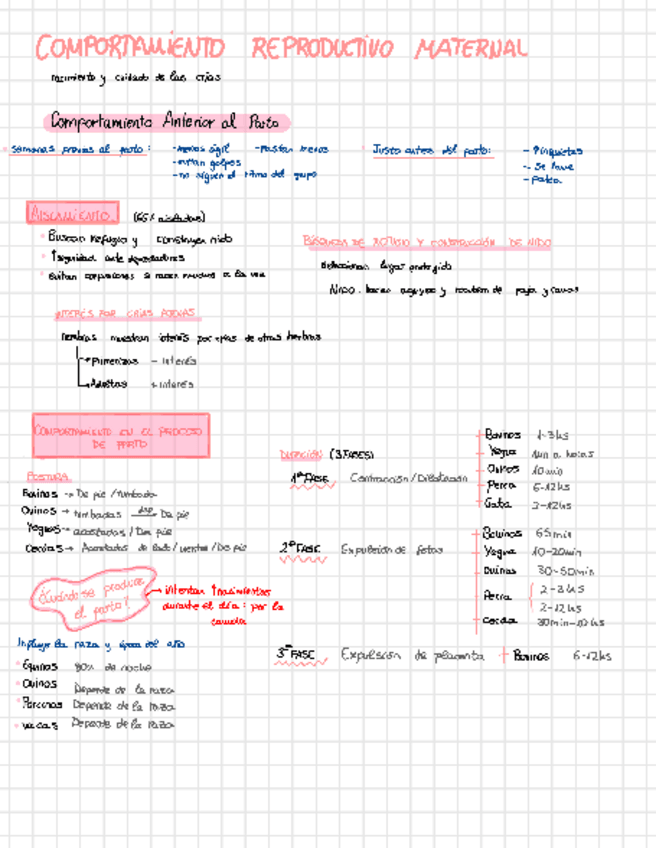 COMPORTAMIENTO REPRODUCTIVO MATERNAL
nacimiento y cuidado de las crías
Comportamiento Anterior al Parto
Semanas previas al parto:
-menos ágil
-Pastan menos
-evitan golpes
-no siguen el ritmo del grupo
Justo antes del parto:
- Inquietas
- Se lave
- patea
AISLAMIENTO (65% aisladas)
Buscan refugio y construyen nido
↑seguridad ante depredadores
Evitan confusiones si nacen muchos a la vez
BÚSQUEDA DE Y CONSTRUCCIÓN DE NIDO
Seleccionan lugar protegido
Nido: hacen agujero y recubren de paja y
INTERÉS POR CRÍAS AJENAS
hembras muestran interés por crías de otras hembras
Primerizas - interés
Adultas + interés
COMPORTAMIENTO EN EL PROCESO
DE PARTO
POSTURA
Bovinos → De pie / tumbada
Ovinos → tumbadas → De pie
Yeguas → acostadas / De pie
Cerdas → Acostadas de lado / vientre / De pie
¿Cuándo se produce
el parto?
→ intentan ↑nacimientos
durante el día: por la
comida
Influye la raza y época del año
Equinos 80% de noche
Ovinos Depende de la raza
Porcinos Depende de la raza
vacas Depende de la raza
DURACIÓN (3 FASES)
1ª FASE Contracción / Dilatación
Bovinos 1-3hs
Yegua 1min a horas
Ovinos 10min
Perra 6-12hs
Gata 2-12hs
2ª FASE Expulsión de fetos
Bovinos 65min
Yegua 10-20min
Ovinas 30-50min
Perra
2-3hs
2-12hs
Cerda 30min-10hs
3ª FASE Expulsión de placenta
Bovinos 6-12hs